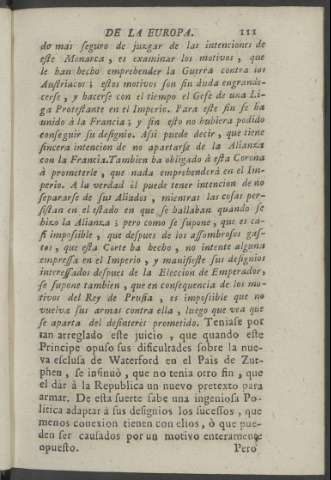 DE LA EUROPA. 111
do mas seguro de juzgar de las intenciones de
este Monarca, es examinar los motivos, que
le han hecho emprehender la Guerra contra los
Austriacos; estos motivos son sin duda engrande-
cerse, y hacerse con el tiempo el Gefe de una Li-
ga Protestante en el Imperio. Para este fin se ha
unido à la Francia; y sin esto no hubiera podido
conseguir su designio. Assi puede decir, que tiene
sincera intencion de no apartarse de la Alianza
con la Francia. Tambien ha obligado à esta Corona
à prometerle, que nada emprehenderà en el Im-
perio. A la verdad èl puede tener intencion de no
separarse de sus Aliados, mientras las cosas per-
sistan en el estado en que se hallaban quando se
hizo la Alianza; pero como se supone, que es ca-
si impossible, que despues de los assombrosos gas-
tos, que esta Corte ha hecho, no intente alguna
empressa en el Imperio, y manifieste sus designios
interessados despues de la Eleccion de Emperador,
se supone tambien, que en consequencia de los mo-
tivos del Rey de Prusia, es impossible que no
vuelva sus armas contra ella, luego que vea que
se aparta del desinterès prometido. Teniase por
tan arreglado este juicio, que quando este
Principe opuso sus dificultades sobre la nue-
va esclusa de Waterford en el Pais de Zut-
phen, se insinuò, que no tenia otro fin, que
el dàr à la Republica un nuevo pretexto para
armar. De esta suerte sabe una ingeniosa Po-
litica adaptar à sus designios los sucessos, que
menos conexion tienen con ellos, ò que pue-
den ser causados por un motivo enteramente
opuesto. Pero